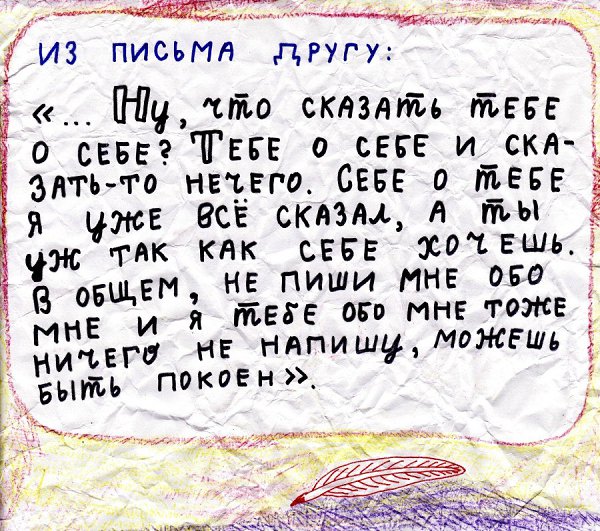 ИЗ ПИСЬМА ДРУГУ:
«... Ну, что сказать тебе
о себе? Тебе о себе и ска-
зать-то нечего. Себе о тебе
я уже всё сказал, а ты
уж так как себе хочешь.
В общем, не пиши мне обо
мне и я тебе обо мне тоже
ничего не напишу, можешь
быть покоен».